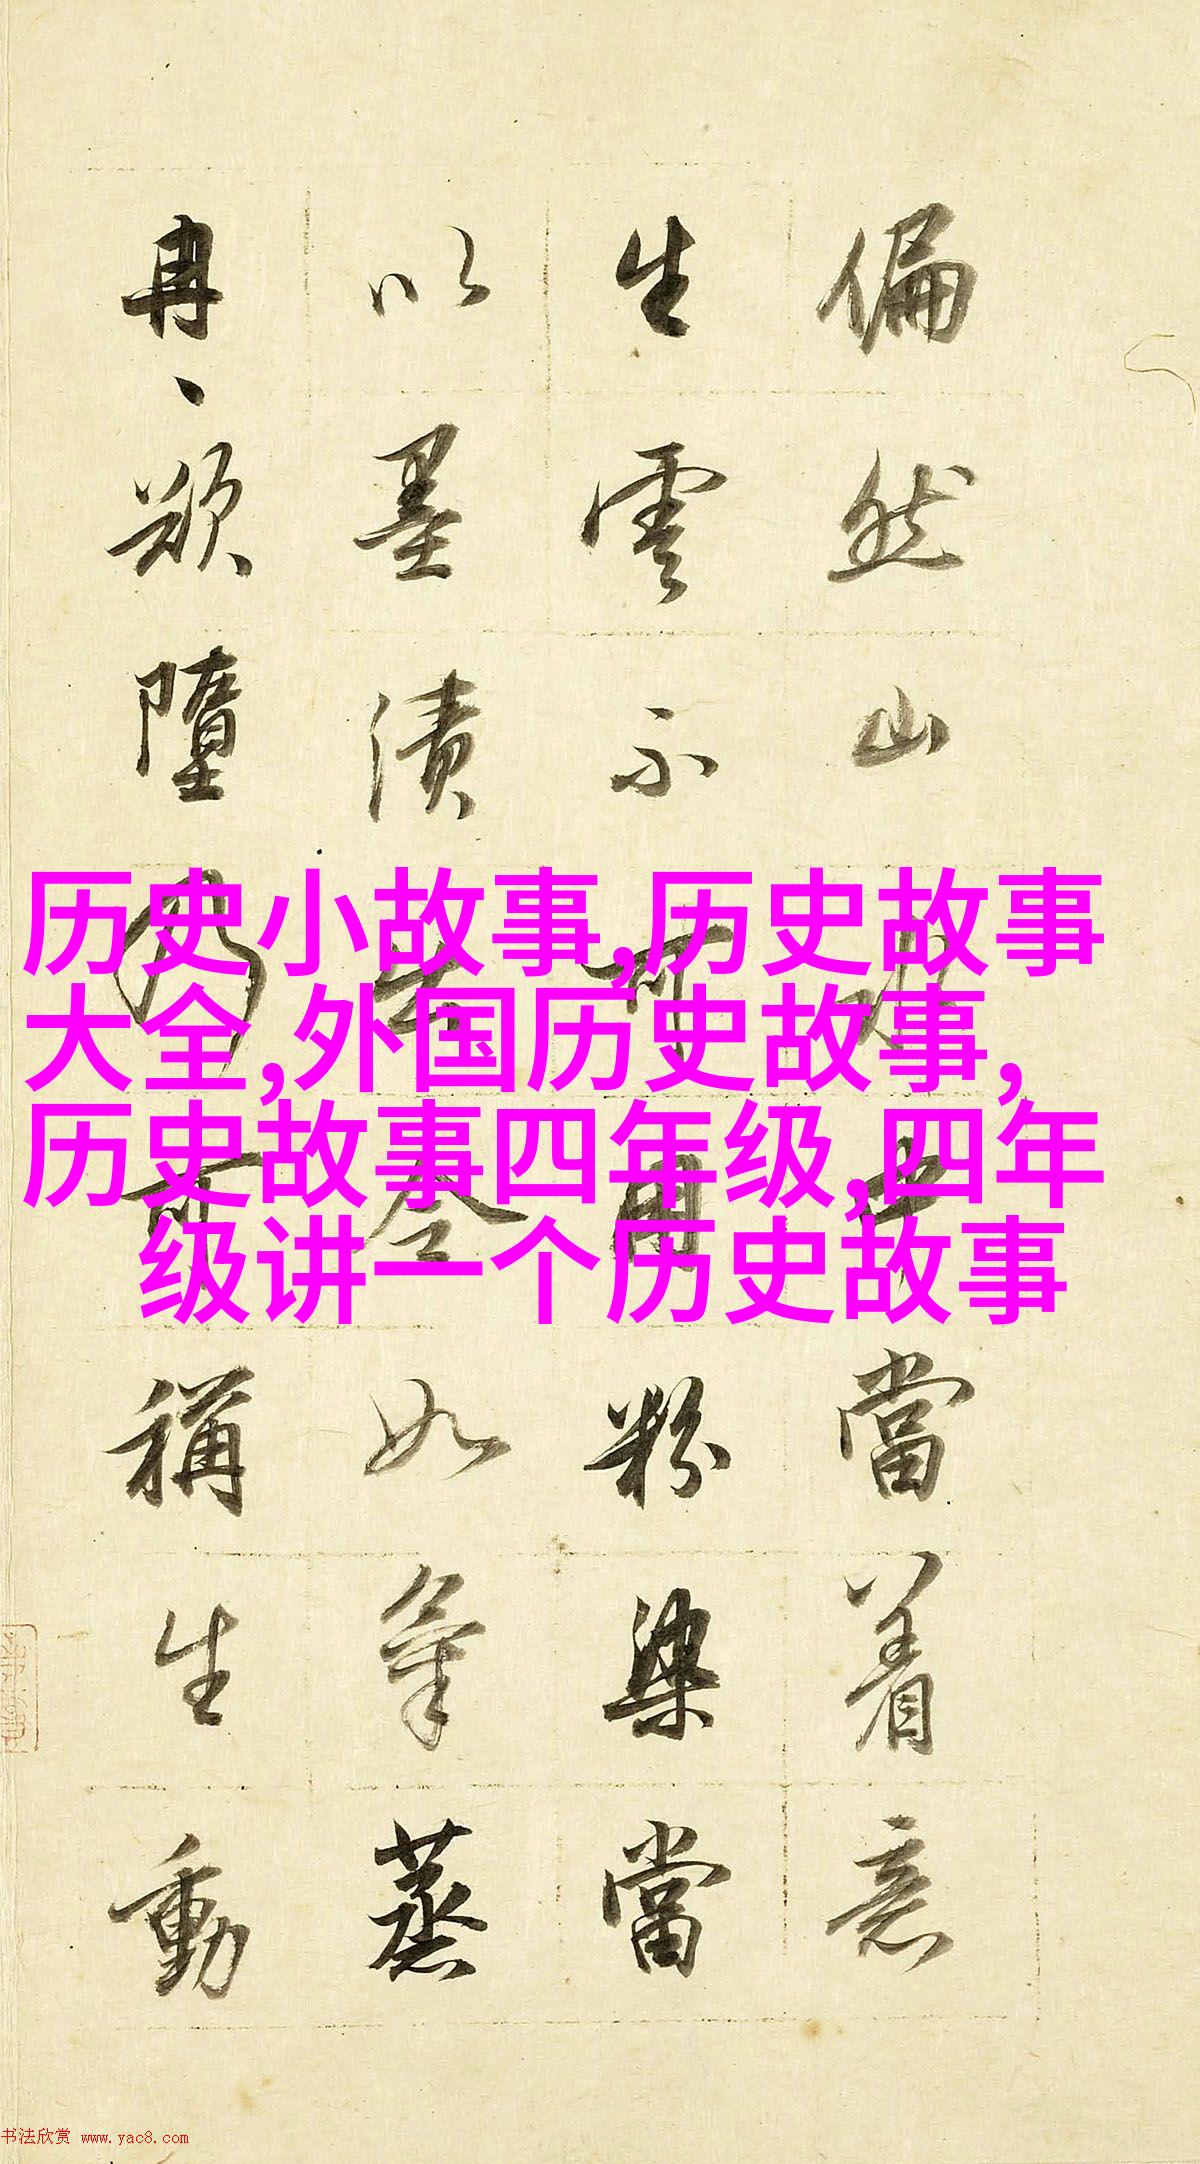 偏然山水中當着意
生雲不可用粉染當
以墨漬出令如氣蒸
冉、欲墮乃可稱生動
历史小故事,历史故事
大全,外国历史故事,
历史故事四年级,四年
级讲一个历史故事
书法欣赏 www.yac8.com